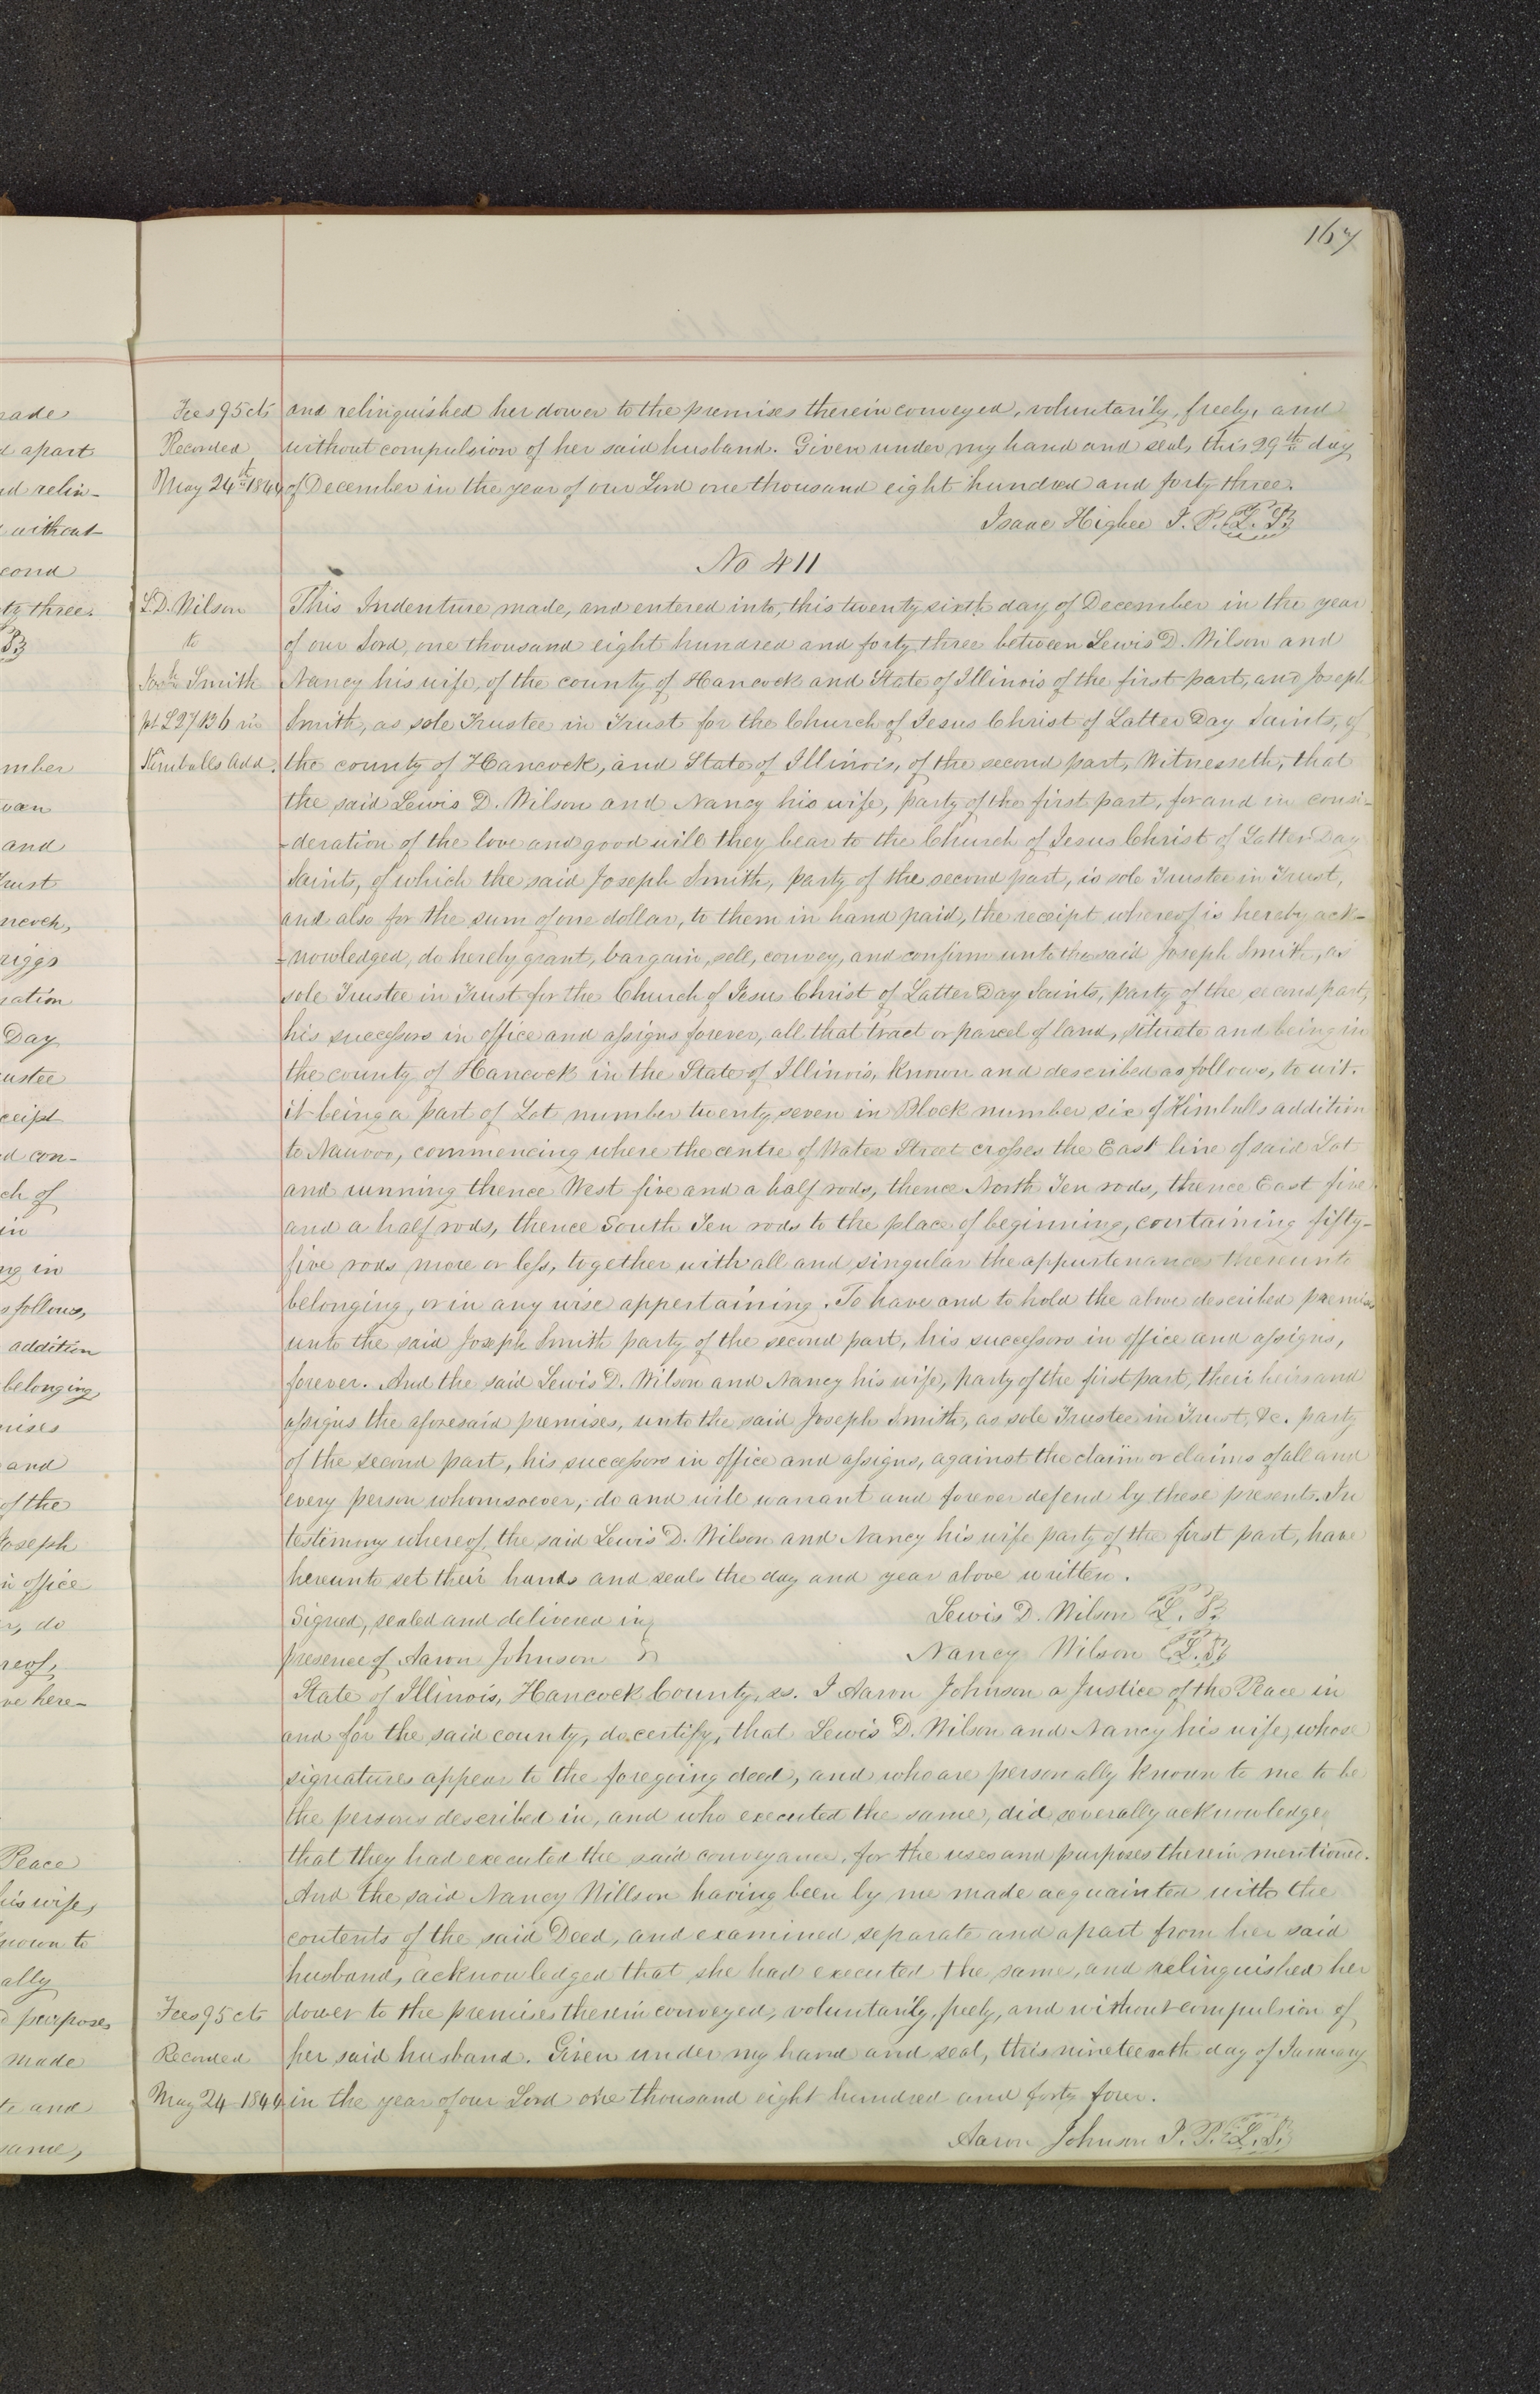 167
Fees 95 cts and relinquished her dower to the premises therein conveyed, voluntarily, freely, and
Recorded without compulsion of her said husband. Given under my hand and seal, this 29th day
May 24th 1844 of December in the year of our Lord one thousand eight hundred and forty three.
Isaac Higbee J. P. L. S.
No 411
L. D. Wilson This Indenture made, and entered into, this twenty sixth day of December in the year
to of our Lord, one thousand eight hundred and forty three between Lewis D. Wilson and
Josh. Smith Nancy his wife, of the county of Hancock and State of Illinois of the first part, and Joseph
pt L 27 B 6 in Smith, as sole Trustee in Trust for the Church of Jesus Christ of Latter Day Saints, of
Kimballs Add. the county of Hancock, and State of Illinois, of the second part, Witnesseth, that
the said Lewis D. Wilson and Nancy his wife, party of the first part, for and in consi-
-deration of the love and good will they bear to the Church of Jesus Christ of Latter Day
Saints, of which the said Joseph Smith, party of the second part, is sole Trustee in Trust,
and also for the sum of one dollar, to them in hand paid, the receipt whereof is hereby ack-
-nowledged, do hereby grant, bargain, sell, convey, and confirm unto the said Joseph Smith, as
sole Trustee in Trust for the Church of Jesus Christ of Latter Day Saints, party of the second part,
his successors in office and assigns forever, all that tract or parcel of land, situate and being in
the county of Hancock in the State of Illinois, known and described as follows, to wit.
it being a part of Lot number twenty seven in Block number six of Kimballs addition
to Nauvoo, commencing where the centre of Water Street crosses the East line of said Lot
and running thence West five and a half rods, thence North Ten rods, thence East five
and a half rods, thence South Ten rods to the place of beginning, containing fifty-
five rods more or less, together with all and singular the appurtenances thereunto
belonging, or in any wise appertaining. To have and to hold the above described premises
unto the said Joseph Smith party of the second part, his successors in office and assigns,
forever. And the said Lewis D. Wilson and Nancy his wife, party of the first part, their heirs and
assigns the aforesaid premises, unto the said Joseph Smith, as sole Trustee in Trust, &c. party
of the second part, his successors in office and assigns, against the claim or claims of all and
every person whomsoever, do and will warrant and forever defend by these presents. In
testimony whereof, the said Lewis D. Wilson and Nancy his wife party of the first part, have
hereunto set their hands and seals the day and year above written.
Signed, sealed and delivered in Lewis D. Wilson L. S.
presence of Aaron Johnson Nancy Wilson L. S.
State of Illinois, Hancock County, ss. I Aaron Johnson a Justice of the Peace in
and for the said county, do certify, that Lewis D. Wilson and Nancy his wife, whose
signatures appear to the foregoing deed, and who are personally known to me to be
the persons described in, and who executed the same, did severally acknowledge
that they had executed the said conveyance, for the uses and purposes therein mentioned.
And the said Nancy Willson having been by me made acquainted with the
contents of the said Deed, and examined separate and apart from her said
husband, acknowledged that she had executed the same, and relinquished her
Fees 95 cts dower to the premises therein conveyed, voluntarily, freely, and without compulsion of
Recorded her said husband. Given under my hand and seal, this nineteenth day of January
May 24 1844 in the year of our Lord one thousand eight hundred and forty four.
Aaron Johnson J. P. L. S.